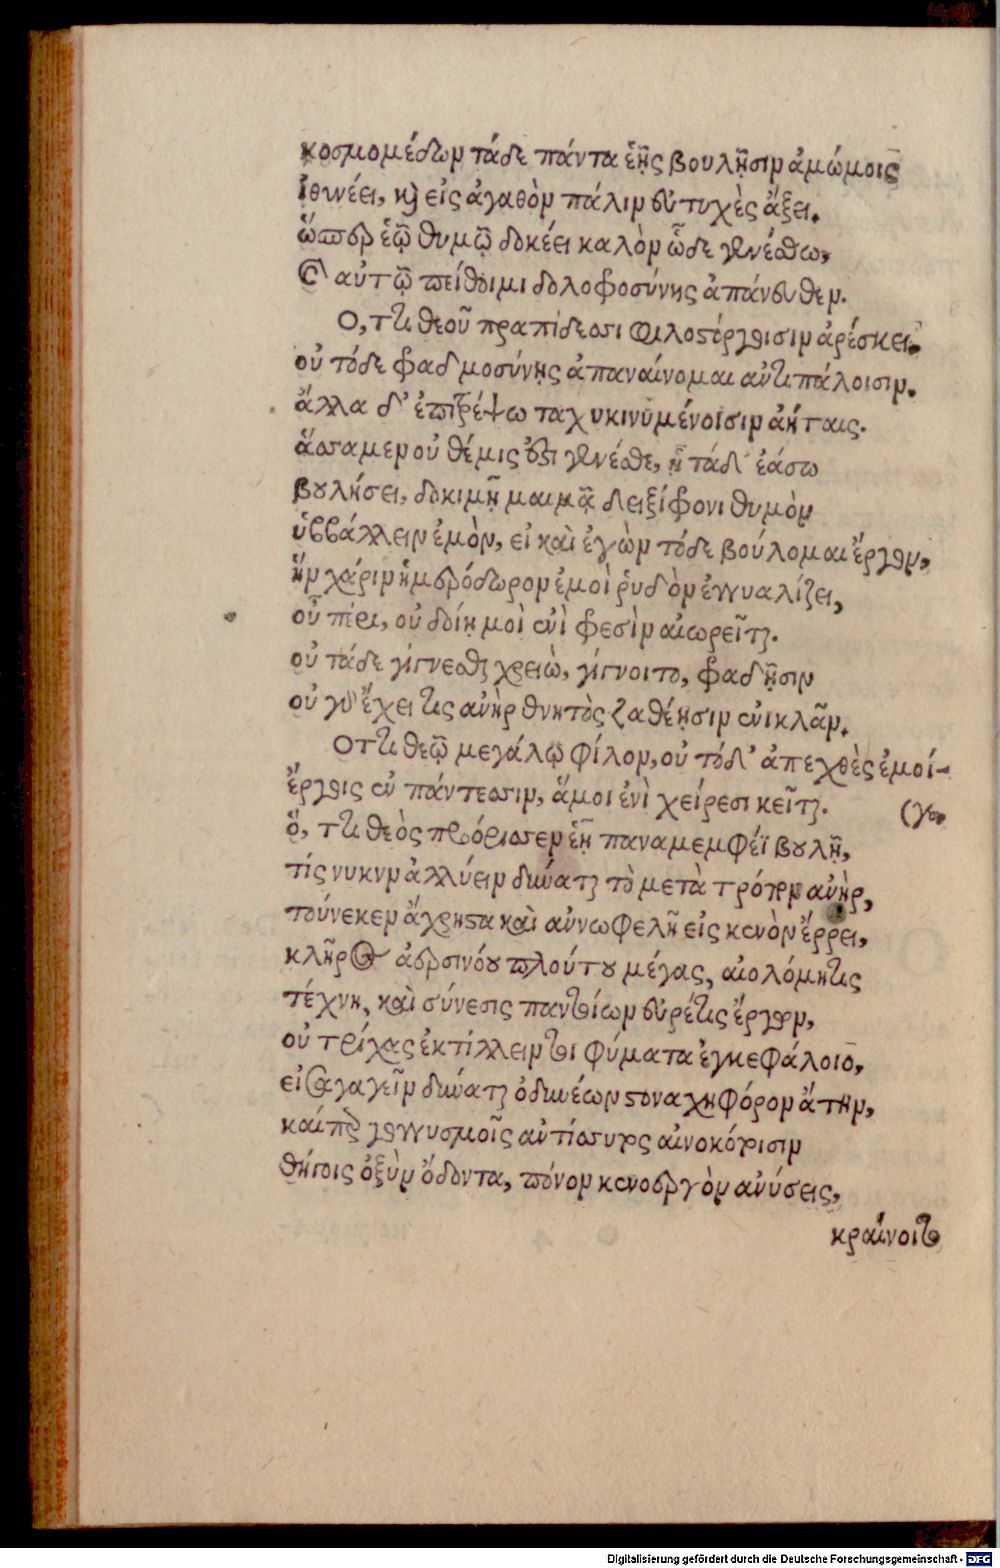 κοσμομέδων τάδε πάντα ἑῇς βουλῇσιν ἀμώμοις
ἰθυνέει, καὶ εἰς ἀγαθὸν πάλιν εὐτυχὲς ἄξει.
ὥσπερ ἑῷ θυμῷ δοκέει καλὸν ὧδε γενέσθω,
αὐτῷ πείθοιμι δολοφοσύνης ἀπάνευθεν.
Ο,τι θεοῦ πραπίδεσσι φιλοστόργοισιν ἀρέσκει.
οὐ τόδε φαδμοσύνης ἀπαναίνομαι ἀντιπάλοισιν.
ἄλλα δ' ἐπιτρέψω ταχυκινυμένοισιν ἀήταις.
ἅσσαμεν οὐ θέμις ἐστὶ γενέσθαι, ἢ τάδ' ἐάσω
βουλήσει, δοκιμῇ μαι κᾂ δειξίφονι θυμὸν
ὑββάλλειν ἐμὸν, εἰ καὶ ἐγὼν τόδε βούλομαι ἔργον,
ἣν χάριν ἡμερόδωρον ἐμοὶ ῥυδὸν ἐγγυαλίζει,
οὗ πέρι, οὐ δοίη μοὶ ἐνὶ φεσὶν αἰωρεῖται.
οὐ τάδε γίγνεσθαι χρειὼ, γίγνοιτο, φαδῇσιν
οὐ γὰρ ἔχει τις ἀνὴρ θνητὸς ζαθέῃσιν ἐνικλᾶν.
Οτι θεῷ μεγάλῳ φίλον, οὐ τόδ' ἀπεχθὲς ἐμοί-
ἔργοις ἐν πάντεσσιν, ἅμοι ἐνὶ χείρεσι κεῖται. (γε
ὅ, τι θεὸς πρόρισσεν ἑῇ παναμεμφέϊ βουλῇ,
τίς νυκνν ἀλλύειν δύναται τὸ μετὰ τρόπον ἀνὴρ,
τοὔνεκεν ἄχρηστα καὶ ἀνωφελῆ εἰς κενὸν ἔρρει,
κλῆρος ἀδρσινόου πλούτου μέγας, αἰολόμητις
τέχνη, καὶ σύνεσις παντοίων εὑρέτις ἔργων,
οὐ τρίχας ἐκτίλλειν τοι φύματα ἐγκεφάλοιο,
εἰσαγαγεῖν δύναται ὀδυνέων στοναχηφόρον ἄτην,
καίπερ γογγυσμοῖς ἀντίσσυτος αἰνοκόρισιν
θήγοις ὀξὺν ὄδοντα, πόνον κενοεργὸν ἀνύσεις,
κραίνοιτο
Digitalisierung gefördert durch die Deutsche Forschungsgemeinschaft - DFG